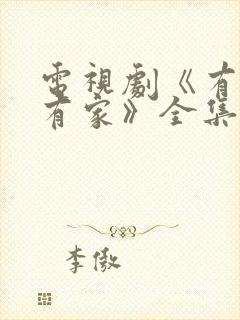 電視劇《有
有家》全集
李傲